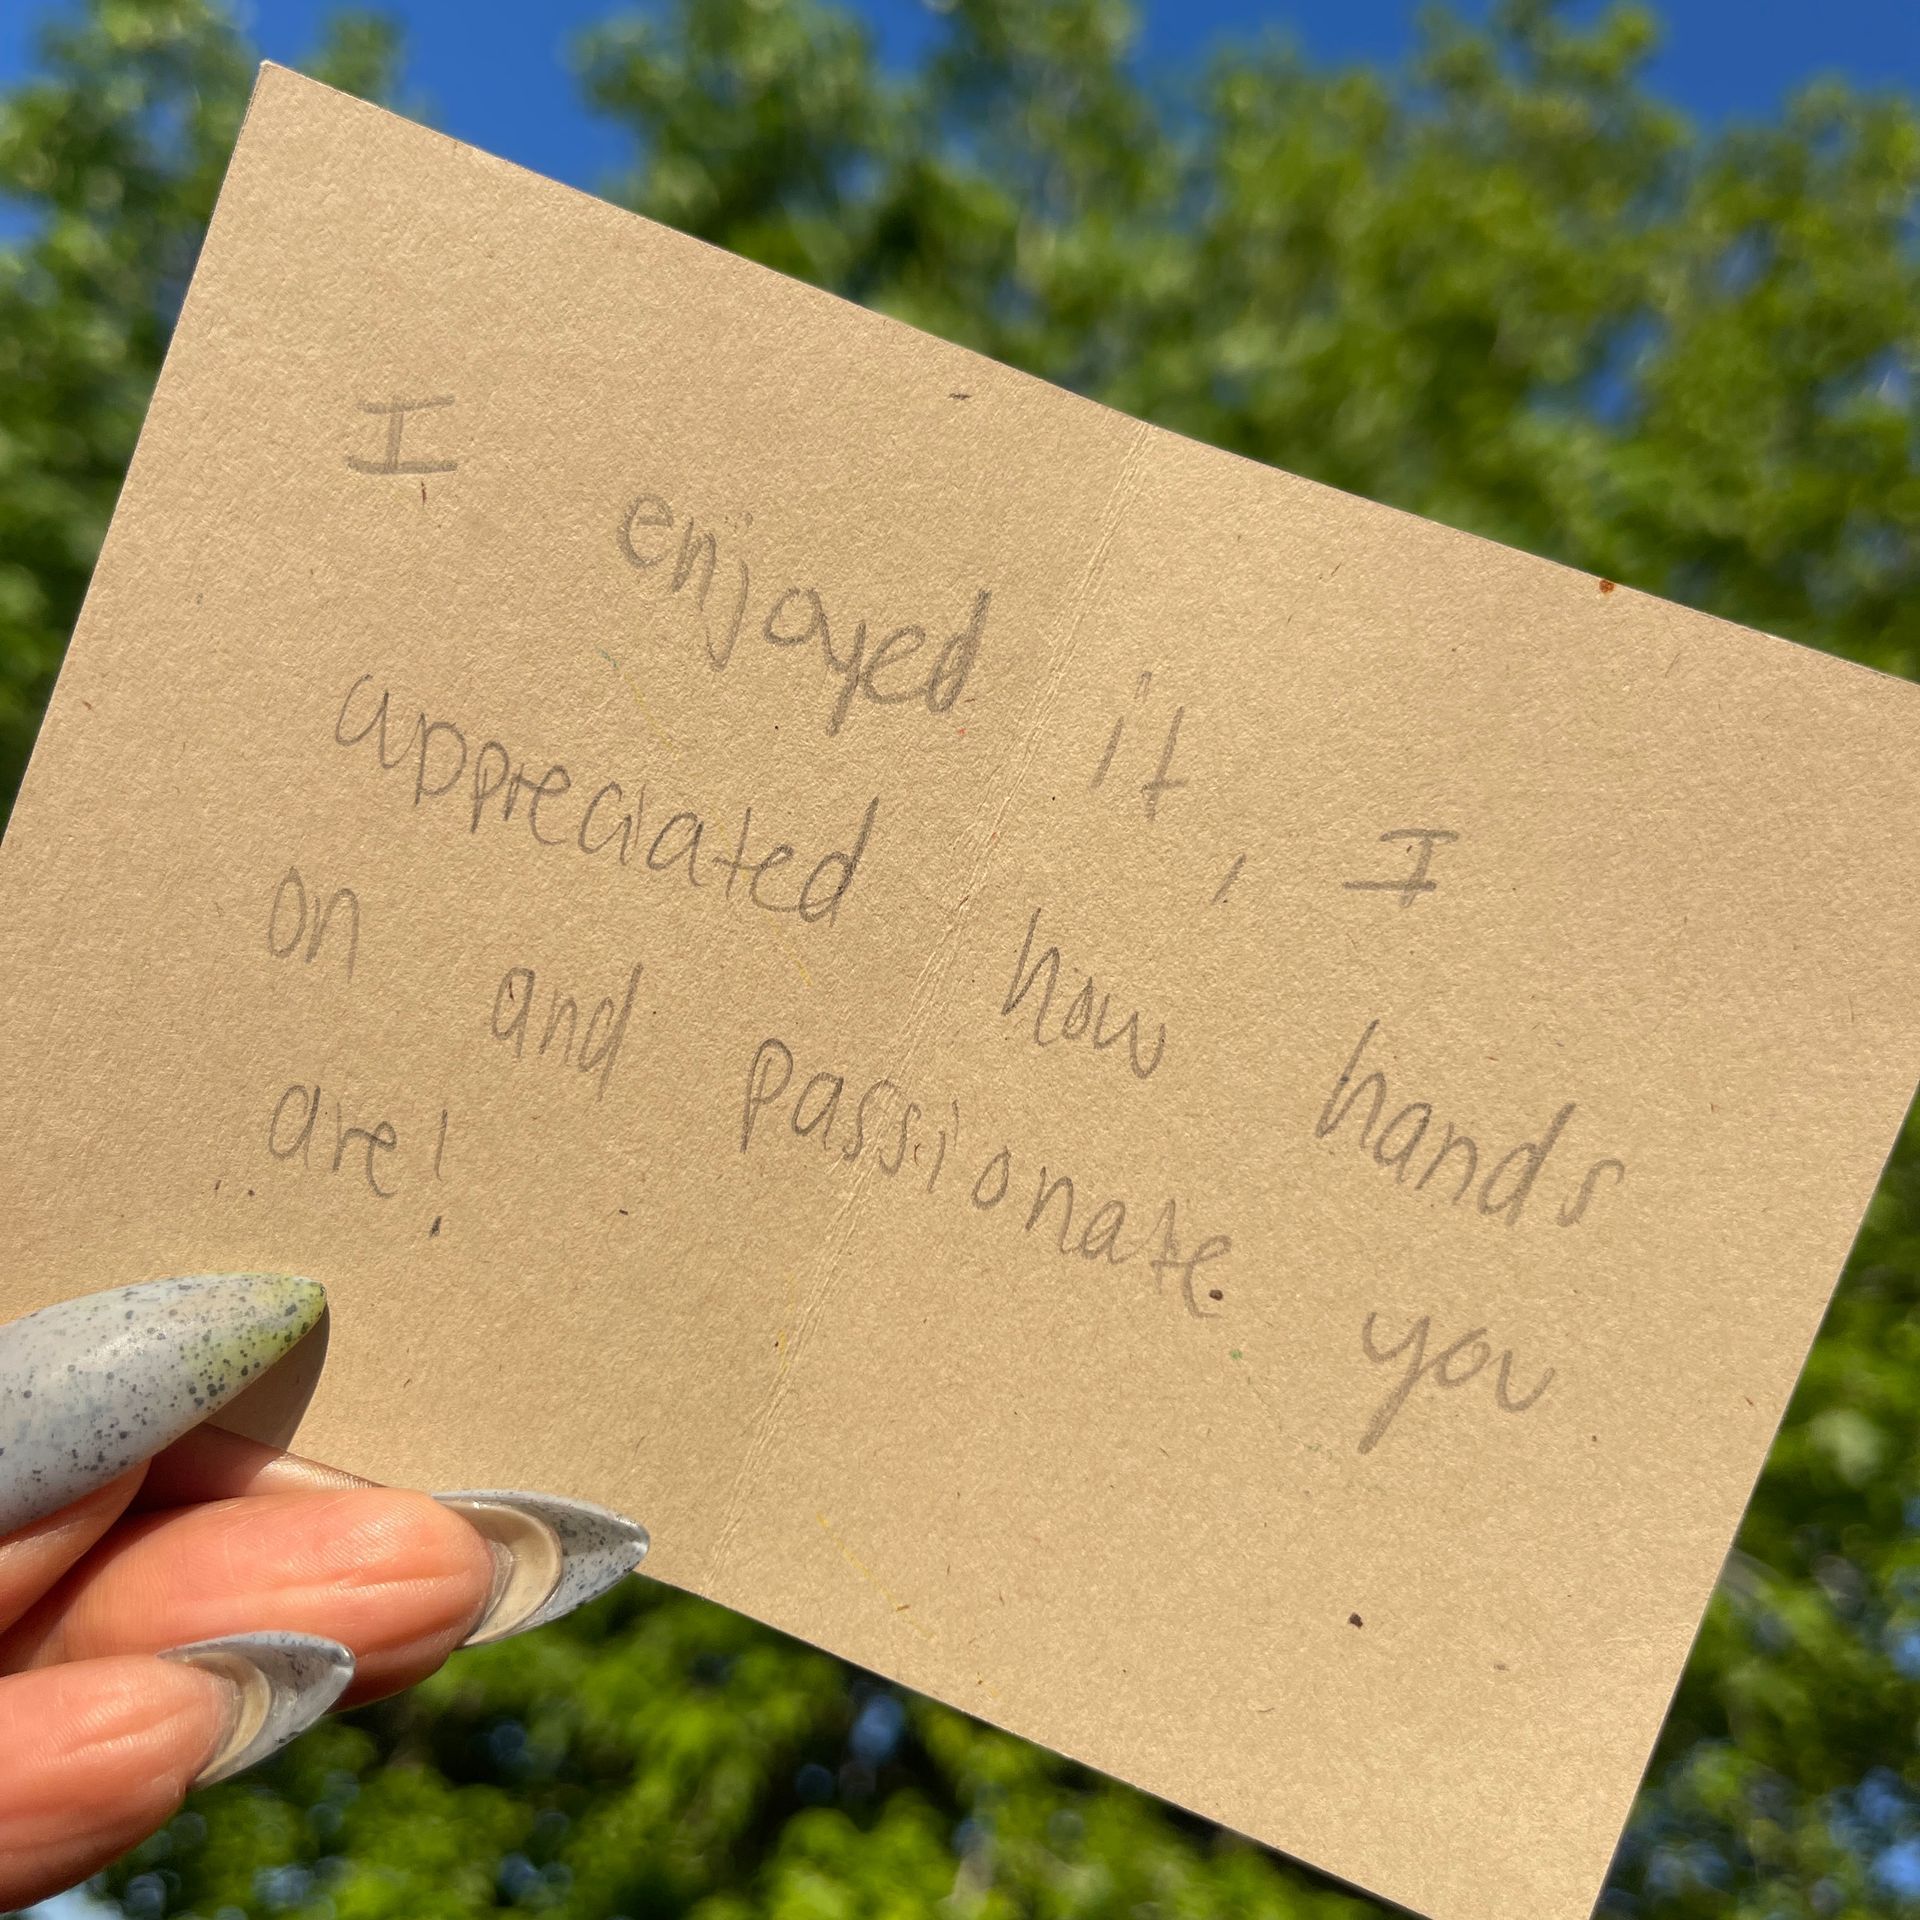 I enjoyed it, I
appreciated how hands
on and passionate you
are!